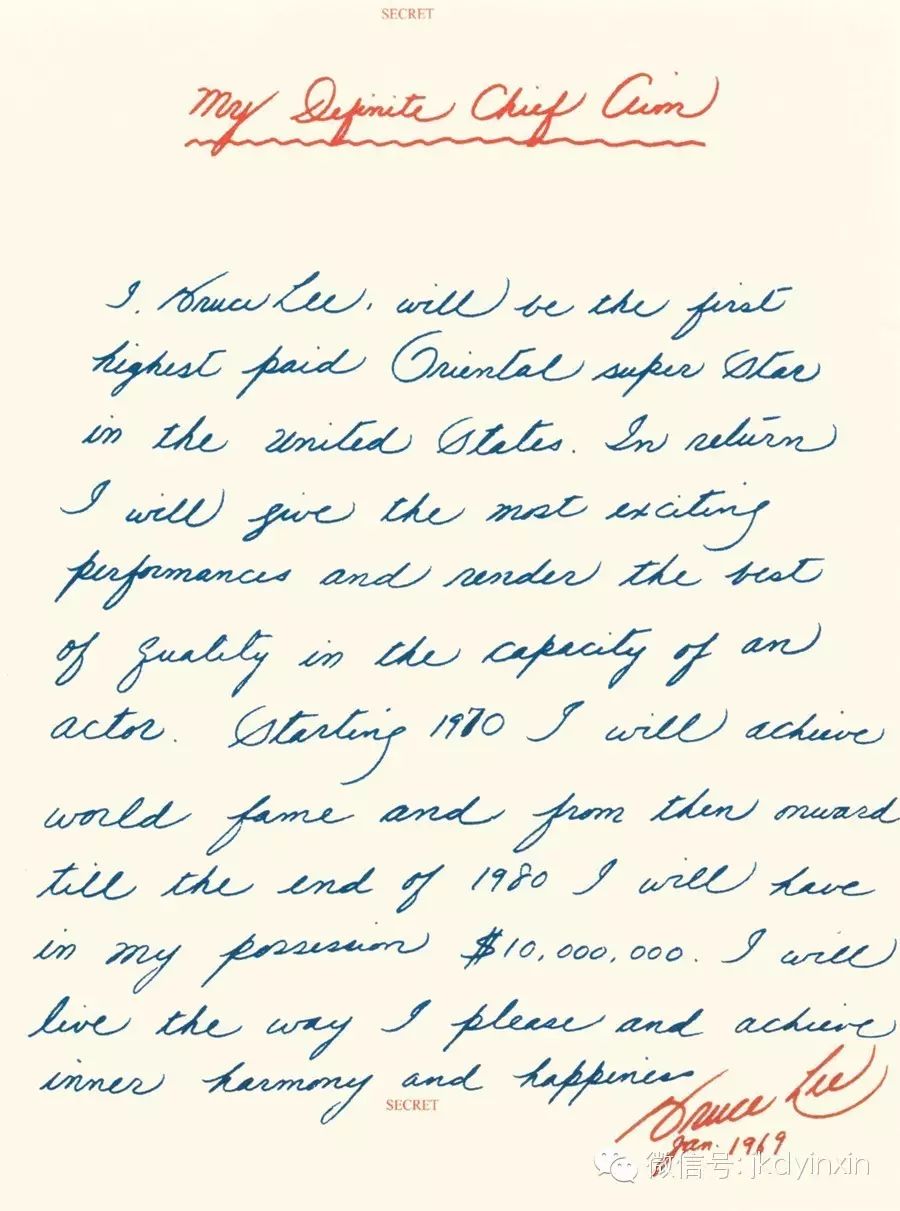 SECRET
My Definite Chief Aim
I, Bruce Lee, will be the first
highest paid Oriental super Star
in the United States. In return
I will give the most exciting
performances and render the best
of quality in the capacity of an
actor. Starting 1970 I will achieve
world fame and from then onward
till the end of 1980 I will have
in my possession $10,000,000. I will
live the way I please and achieve
inner harmony and happiness
SECRET
Bruce Lee
Jan. 1969
微信号: jkdyinxin